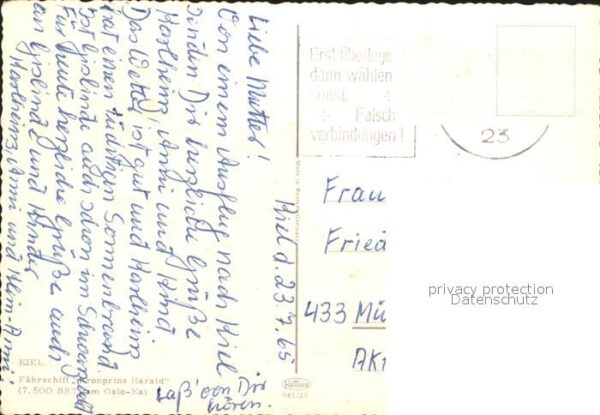 Kiel d. 23.7.65
Liebe Mutter!
Von einem Ausflug nach Kiel
senden Dir herzliche Grüße
Karlheinz, Anni und Kind
Das Wetter ist gut und Karlheinz
hat einen tüchtigen Sonnenbrand.
Ist Gislinde auch schon im Schwarzwald
Für heute herzliche Grüße auch
an Gislinde und Kinder
Karlheinz, Anni und Klein-Anni.
Laß' von Dir
hören.
Erst überlegen,
dann wählen
sonst
Falsch
verbindungen!
23
Frau
Fried
433 Mü
AKt
privacy protection
Datenschutz
KIEL
Fährschiff "Kronprins Harald"
(7.500 BRT) am Oslo-Kai
Krüger
981/20